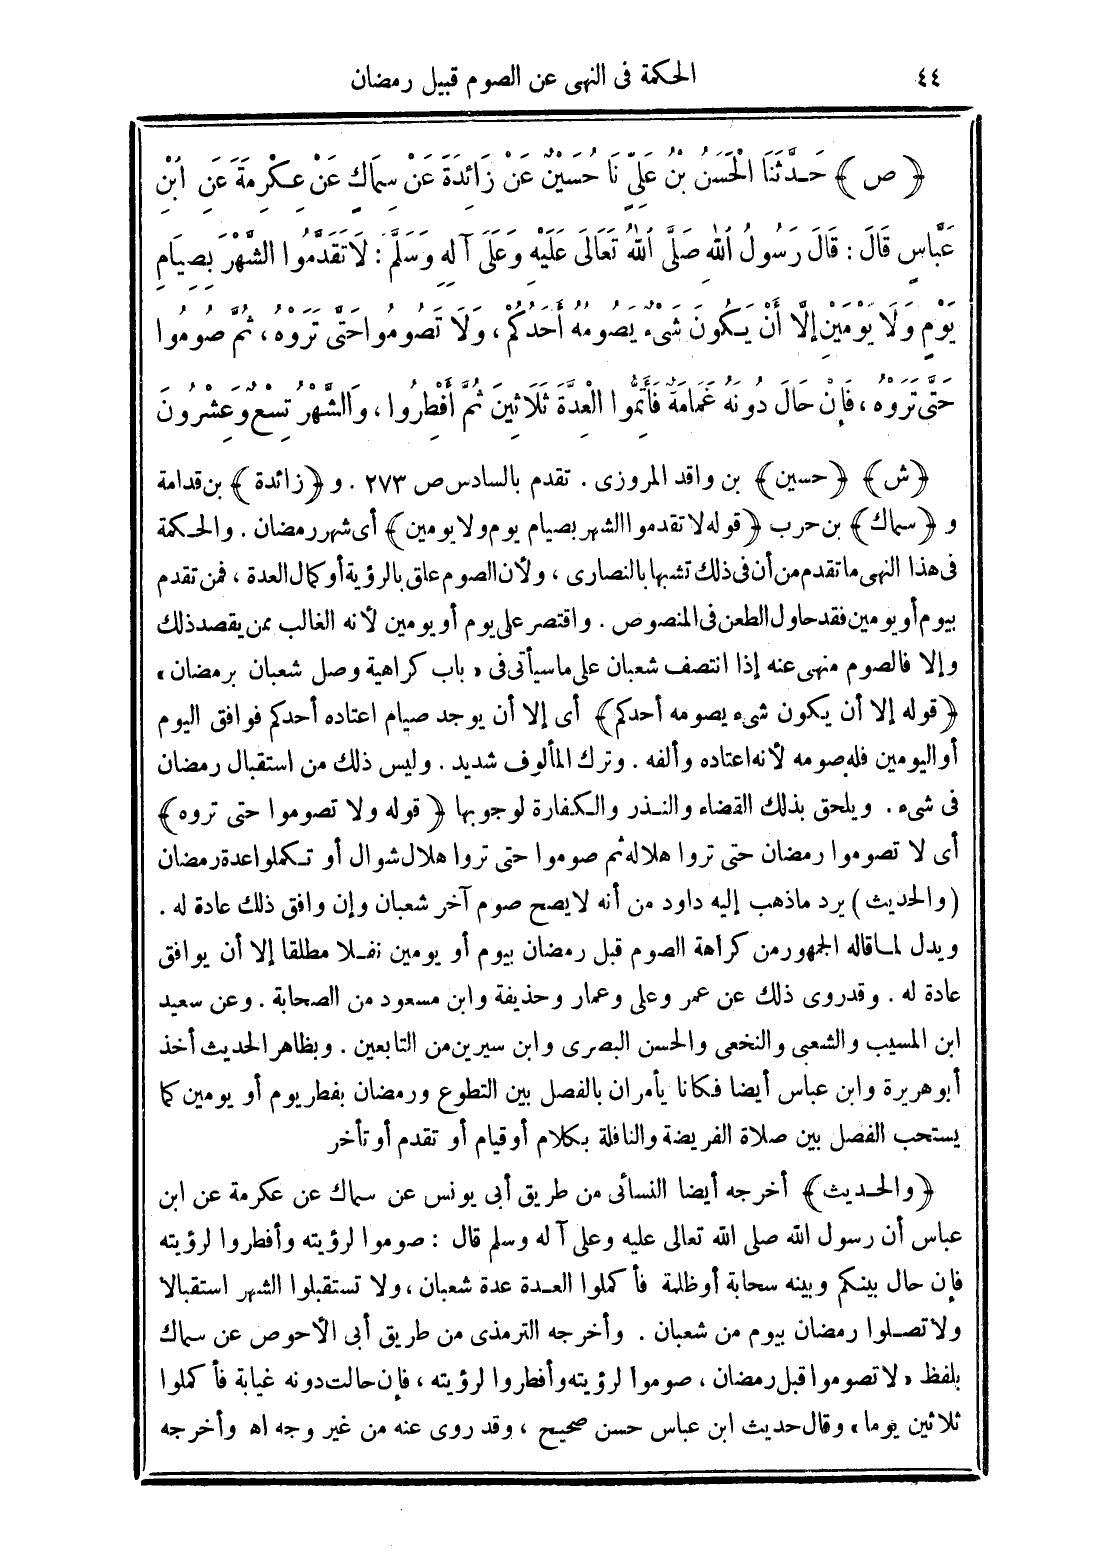 ٤٤ الحكمة فى النهى عن الصوم قبيل رمضان
﴿ ص ﴾ حَدَّثَنَا الْحَسَنُ بْنُ عَلِيٍّ نَا حُسَيْنٌ عَنْ زَائِدَةَ عَنْ سِمَاكٍ عَنْ عِكْرِمَةَ عَنِ ابْنِ
عَبَّاسٍ قَالَ : قَالَ رَسُولُ اللهِ صَلَّى اللهُ تَعَالَى عَلَيْهِ وَعَلَى آلِهِ وَسَلَّمَ : لَا تَقَدَّمُوا الشَّهْرَ بِصِيَامِ
يَوْمٍ وَلَا يَوْمَيْنِ إِلَّا أَنْ يَكُونَ شَىْءٌ يَصُومُهُ أَحَدُكُمْ ، وَلَا تَصُومُوا حَتَّى تَرَوْهُ ، ثُمَّ صُومُوا
حَتَّى تَرَوْهُ ، فَإِنْ حَالَ دُونَهُ غَمَامَةٌ فَأَتِمُّوا الْعِدَّةَ ثَلَاثِينَ ثُمَّ أَفْطِرُوا ، وَالشَّهْرُ تِسْعٌ وَعِشْرُونَ
﴿ش﴾ ﴿حسين﴾ بن واقد المروزى . تقدم بالسادس ص ٢٧٣ . و ﴿زائدة﴾ بن قدامة
و ﴿سماك﴾ بن حرب ﴿قوله لا تقدموا الشهر بصيام يوم ولا يومين﴾ أى شهر رمضان . والحكمة
فى هذا النهى ما تقدم من أن فى ذلك تشبها بالنصارى ، ولأن الصوم علق بالرؤية أو كمال العدة ، فمن تقدم
بيوم أو يومين فقد حاول الطعن فى المنصوص . واقتصر على يوم أو يومين لأنه الغالب ممن يقصد ذلك
وإلا فالصوم منهى عنه إذا انتصف شعبان على ما سيأتى فى « باب كراهية وصل شعبان برمضان »
﴿قوله إلا أن يكون شىء يصومه أحدكم﴾ أى إلا أن يوجد صيام اعتاده أحدكم فوافق اليوم
أو اليومين فله صومه لأنه اعتاده وألفه . وترك المألوف شديد . وليس ذلك من استقبال رمضان
فى شىء . ويلحق بذلك القضاء والنذر والكفارة لوجوبها ﴿قوله ولا تصوموا حتى تروه﴾
أى لا تصوموا رمضان حتى تروا هلاله ثم صوموا حتى تروا هلال شوال أو تكملوا عدة رمضان
(والحديث) يرد ما ذهب إليه داود من أنه لا يصح صوم آخر شعبان وإن وافق ذلك عادة له .
ويدل لما قاله الجمهور من كراهة الصوم قبل رمضان بيوم أو يومين نفلا مطلقا إلا أن يوافق
عادة له . وقد روى ذلك عن عمر وعلى وعمار وحذيفة وابن مسعود من الصحابة . وعن سعيد
ابن المسيب والشعبى والنخعى والحسن البصرى وابن سيرين من التابعين . وبظاهر الحديث أخذ
أبو هريرة وابن عباس أيضا فكانا يأمران بالفصل بين التطوع ورمضان بفطر يوم أو يومين كما
يستحب الفصل بين صلاة الفريضة والنافلة بكلام أو قيام أو تقدم أو تأخر
﴿والحديث﴾ أخرجه أيضا النسائى من طريق أبى يونس عن سماك عن عكرمة عن ابن
عباس أن رسول الله صلى الله تعالى عليه وعلى آله وسلم قال : صوموا لرؤيته وأفطروا لرؤيته
فإن حال بينكم وبينه سحابة أو ظلمة فأكملوا العدة عدة شعبان ، ولا تستقبلوا الشهر استقبالا
ولا تصلوا رمضان بيوم من شعبان . وأخرجه الترمذى من طريق أبى الأحوص عن سماك
بلفظ « لا تصوموا قبل رمضان ، صوموا لرؤيته وأفطروا لرؤيته ، فإن حالت دونه غيابة فأكملوا
ثلاثين يوما » وقال حديث ابن عباس حسن صحيح ، وقد روى عنه من غير وجه اه وأخرجه